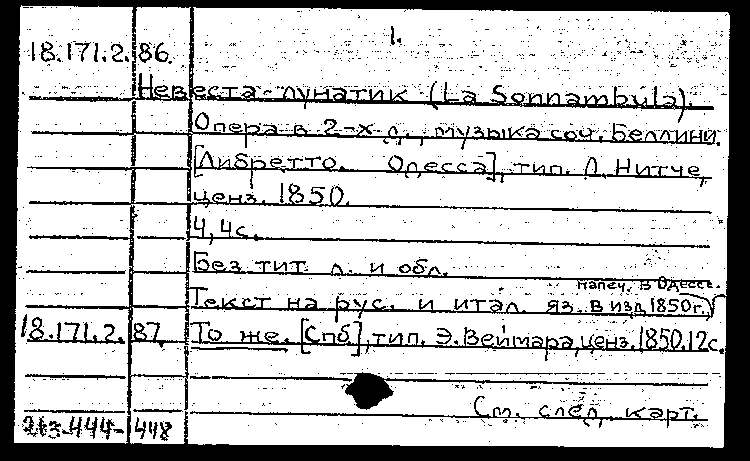 1.
18.171.2.86.
Невеста-лунатик (La Sonnambula).
Опера в 2-х д., музыка соч. Беллини.
[Либретто. Одесса], тип. Л. Нитче,
ценз. 1850.
4, 4с.
Без тит. л. и обл.
напеч. в Одессе.
Текст на рус. и итал. яз. в изд. 1850г.
18.171.2.87. То же. [Спб], тип. Э. Веймара, ценз. 1850. 12с.
См. след. карт.
444-448